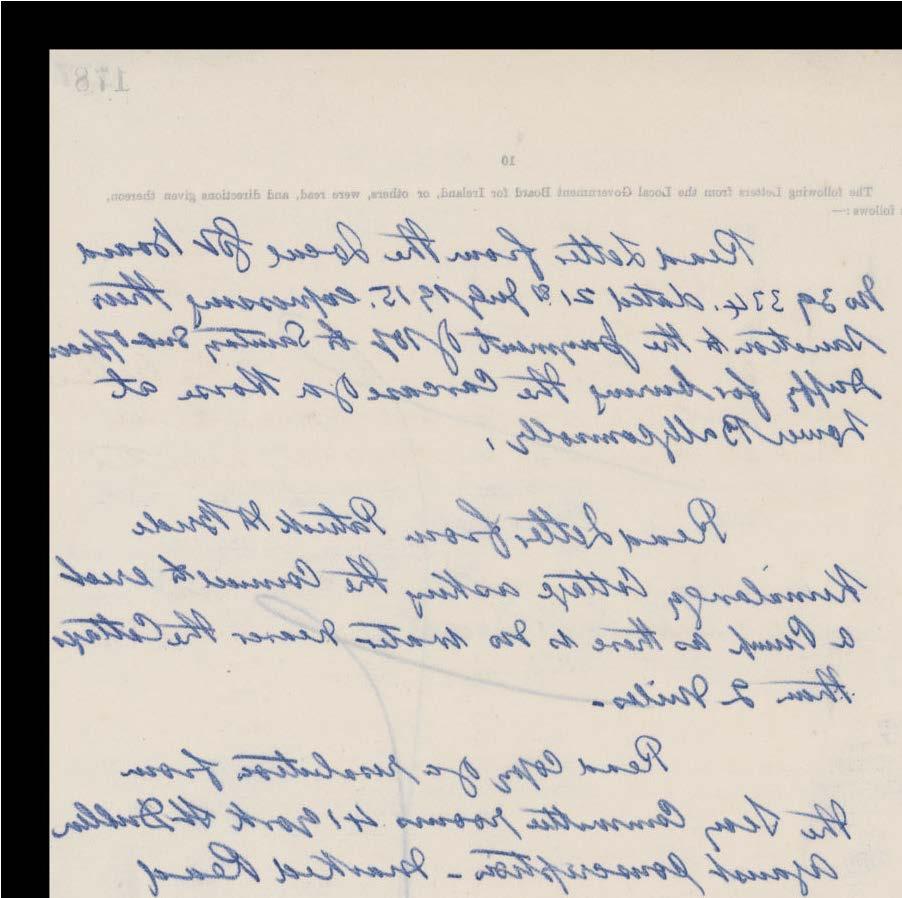 178
10
The following Letters from the Local Government Board for Ireland, or others, were read, and directions given thereon,
follows :—
Read Letter from the Local Gov Board
No 39 334. dated 21st July 1915. expressing their
Sanction to the payment of 10/- to Sanitary Sub Officer
Duffy for burying the Carcase of a Horse at
Lower
Read Letter from Patrick McBride
Cottage asking the Council to erect
a Pump as there is no water nearer the Cottages
than 2 Miles -
Read Copy of a resolution from
the Secy Committee rooms 41 York St Dublin
Against Conscription - Marked Read